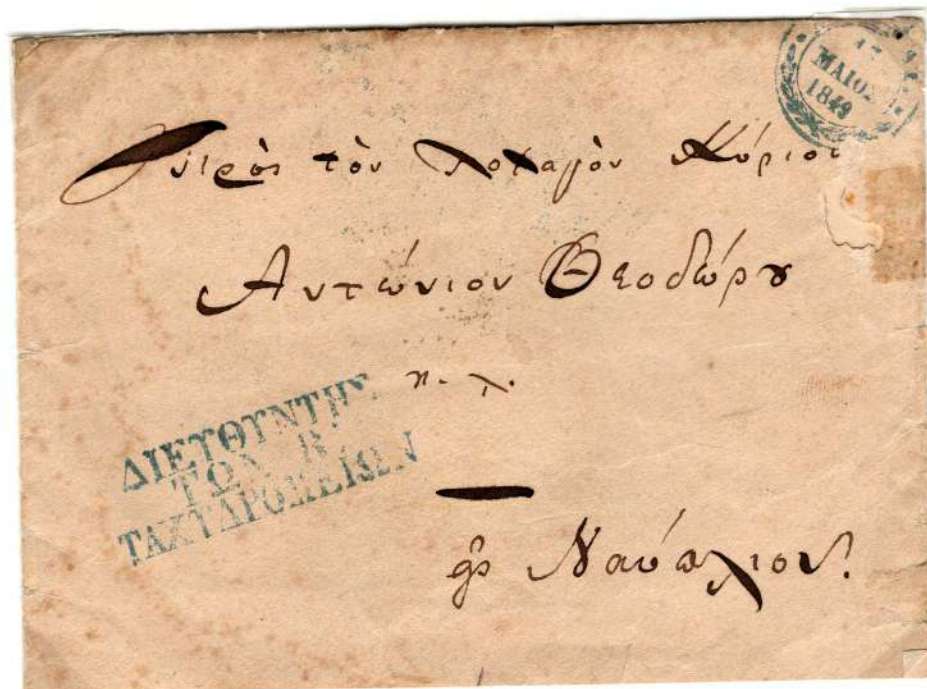 ΜΑΙΟΣ
1849
Πρὸς τὸν Λοχαγὸν Κύριον
Ἀντώνιον Θεοδώρȣ
ΔΙΕΥΘΥΝΤΗΣ
ΤΩΝ Β.
ΤΑΧΥΔΡΟΜΕΙΩΝ
εἰς Ναύπλιον.